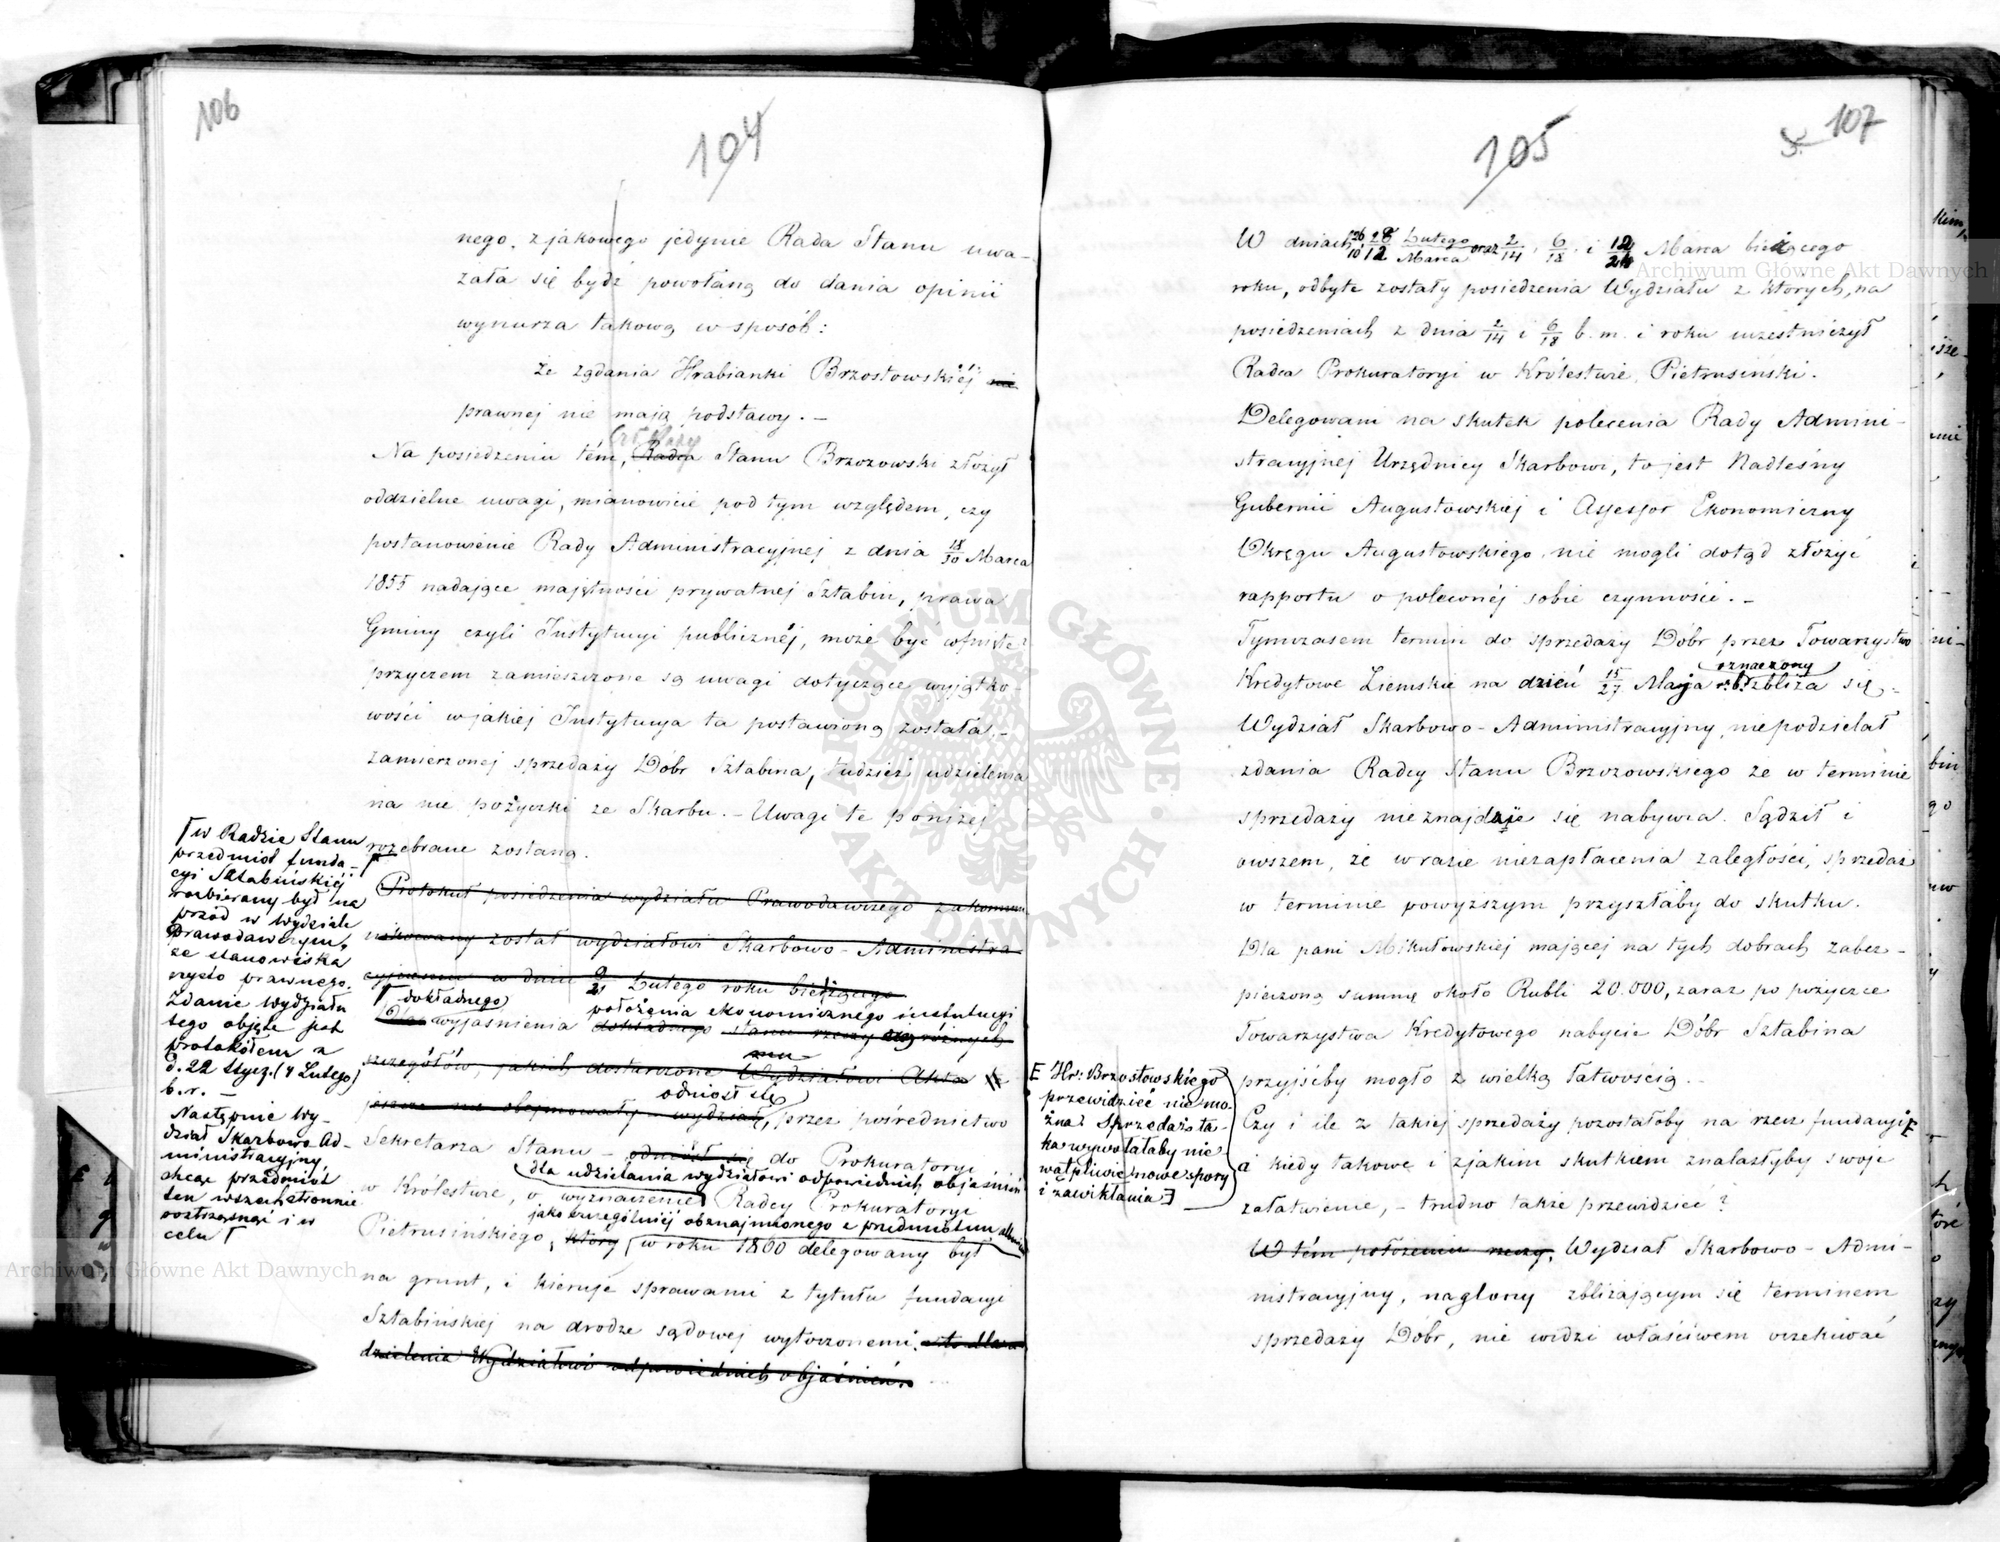 106
104
nego, z jakowego jedynie Rada Stanu uwa-
zała się bydź powołaną do dania opinii
wynurza takową w sposób:
że żądania Hrabianki Brzostowskiéj nie
prawnej nie mają podstawy. —
Na posiedzeniu tém, Radca Stanu Brzozowski złożył
oddzielne uwagi, mianowicie pod tym względem, czy
postanowienie Rady Administracyjnej z dnia 18/30 Marca
1855 nadające majętności prywatnej Sztabin, prawa
Gminy czyli Instytucyi publicznéj, może być cofnięte?
przyczem zamieszczone są uwagi dotyczące wyjątko-
wości w jakiej Instytucya ta postawioną została, -
zamierzonej sprzedaży Dóbr Sztabina, tudzież udzielenia
na nie pożyczki ze Skarbu. - Uwagi te poniżej
rozebrane zostaną.
Γ w Radzie Stanu
przedmiot funda-
cyi Sztabińskiéj
rozbierany był na
przód w Wydziale
Prawodawczym,
ze stanowiska
czysto prawnego.
Zdanie Wydziału
tego objęte jest
protokółem z
d. 22 Stycz. (4 Lutego)
b. r. —
Następnie Wy-
dział Skarbowo Ad-
ministracyjny
chcąc przedmiot
ten wszechstronnie
roztrząsnąć i w
celu Γ
Protokuł posiedzenia wydziału Prawodawczego zakommu
nikowany został wydziałowi Skarbowo - Administra
cyjnemu w dniu 9/21 Lutego roku bieżącego
Γ dokładnego położenia ekonomicznego instytucyi
Dla wyjaśnienia dokładnego stanu rzeczy i różnych
szczegółów, jakich dostarczone Wydziałowi Akta
odniosł się
jeszcze nie obejmowały - wydział, przez pośrednictwo
Sekretarza Stanu - odniósł się do Prokuratoryi
dla udzielania wydziałowi odpowiednich objaśnień
w Królestwie, o wyznaczenie Radcy Prokuratoryi
jako szczególniéj obznajmionego z przedmiotem
Pietrusińskiego, który w roku 1860 delegowany był
na grunt, i kieruje sprawami z tytułu fundacyi
Sztabińskiej na drodze sądowej wytoczonemi,
dzielenia Wydziałowi odpowiednich objaśnień.
105
107
W dniach 26/10, 28/12 Lutego/Marca oraz 2/14, 6/18 i 12/24 Marca bieżącego
roku, odbyte zostały posiedzenia Wydziału z których, na
posiedzeniach z dnia 2/14 i 6/18 b. m. i roku uczestniczył
Radca Prokuratoryi w Królestwie, Pietrusiński.
Delegowani na skutek polecenia Rady Admini-
stracyjnej Urzędnicy Skarbowi, to jest Nadleśny
Gubernii Augustowskiej i Assessor Ekonomiczny
Okręgu Augustowskiego, nie mogli dotąd złożyć
rapportu o poleconéj sobie czynności. —
Tymczasem termin do sprzedaży Dóbr przez Towarzystwo
oznaczony
Kredytowe Ziemskie na dzień 15/27 Maja r. b. zbliża się,
Wydział Skarbowo - Administracyjny, niepodzielał
zdania Radcy Stanu Brzozowskiego że w terminie
sprzedaży nieznajdzie się nabywca. Sądził i
owszem, że w razie niezapłacenia zaległości, sprzedaż
w terminie powyższym przyszłaby do skutku.
Dla pani Mikułowskiej mającej na tych dobrach zabez-
pieczoną summę około Rubli 20.000, zaraz po pożyczce
Towarzystwa Kredytowego nabycie Dóbr Sztabina
przyjśćby mogło z wielką łatwością. —
Czy i ile z takiej sprzedaży pozostałoby na rzecz fundacyi E
E Hr: Brzostowskiego
przewidzieć nie mo-
żna? Sprzedaż ta-
ka wywołałaby nie
wątpliwie nowe spory
i zawikłania ]
a kiedy takowe i z jakim skutkiem znalazłyby swoje
załatwienie, - trudno także przewidzieć?
W tém położeniu rzeczy, Wydział Skarbowo - Admi-
nistracyjny, naglony zbliżającym się terminem
sprzedaży Dóbr, nie widzi właściwem oczekiwać
ARCHIWUM GŁÓWNE AKT DAWNYCH
Archiwum Główne Akt Dawnych
Archiwum Główne Akt Dawnych